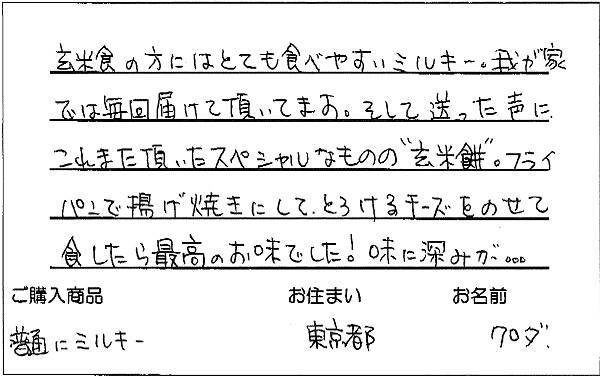 玄米食の方にはとても食べやすいミルキー。我が家
では毎回届けて頂いてます。そして送った声に
これまた頂いたスペシャルなものの"玄米餅"。フライ
パンで揚げ焼きにして、とろけるチーズをのせて
食したら最高のお味でした！味に深みが...
ご購入商品 お住まい お名前
普通にミルキー 東京都 クロダ.